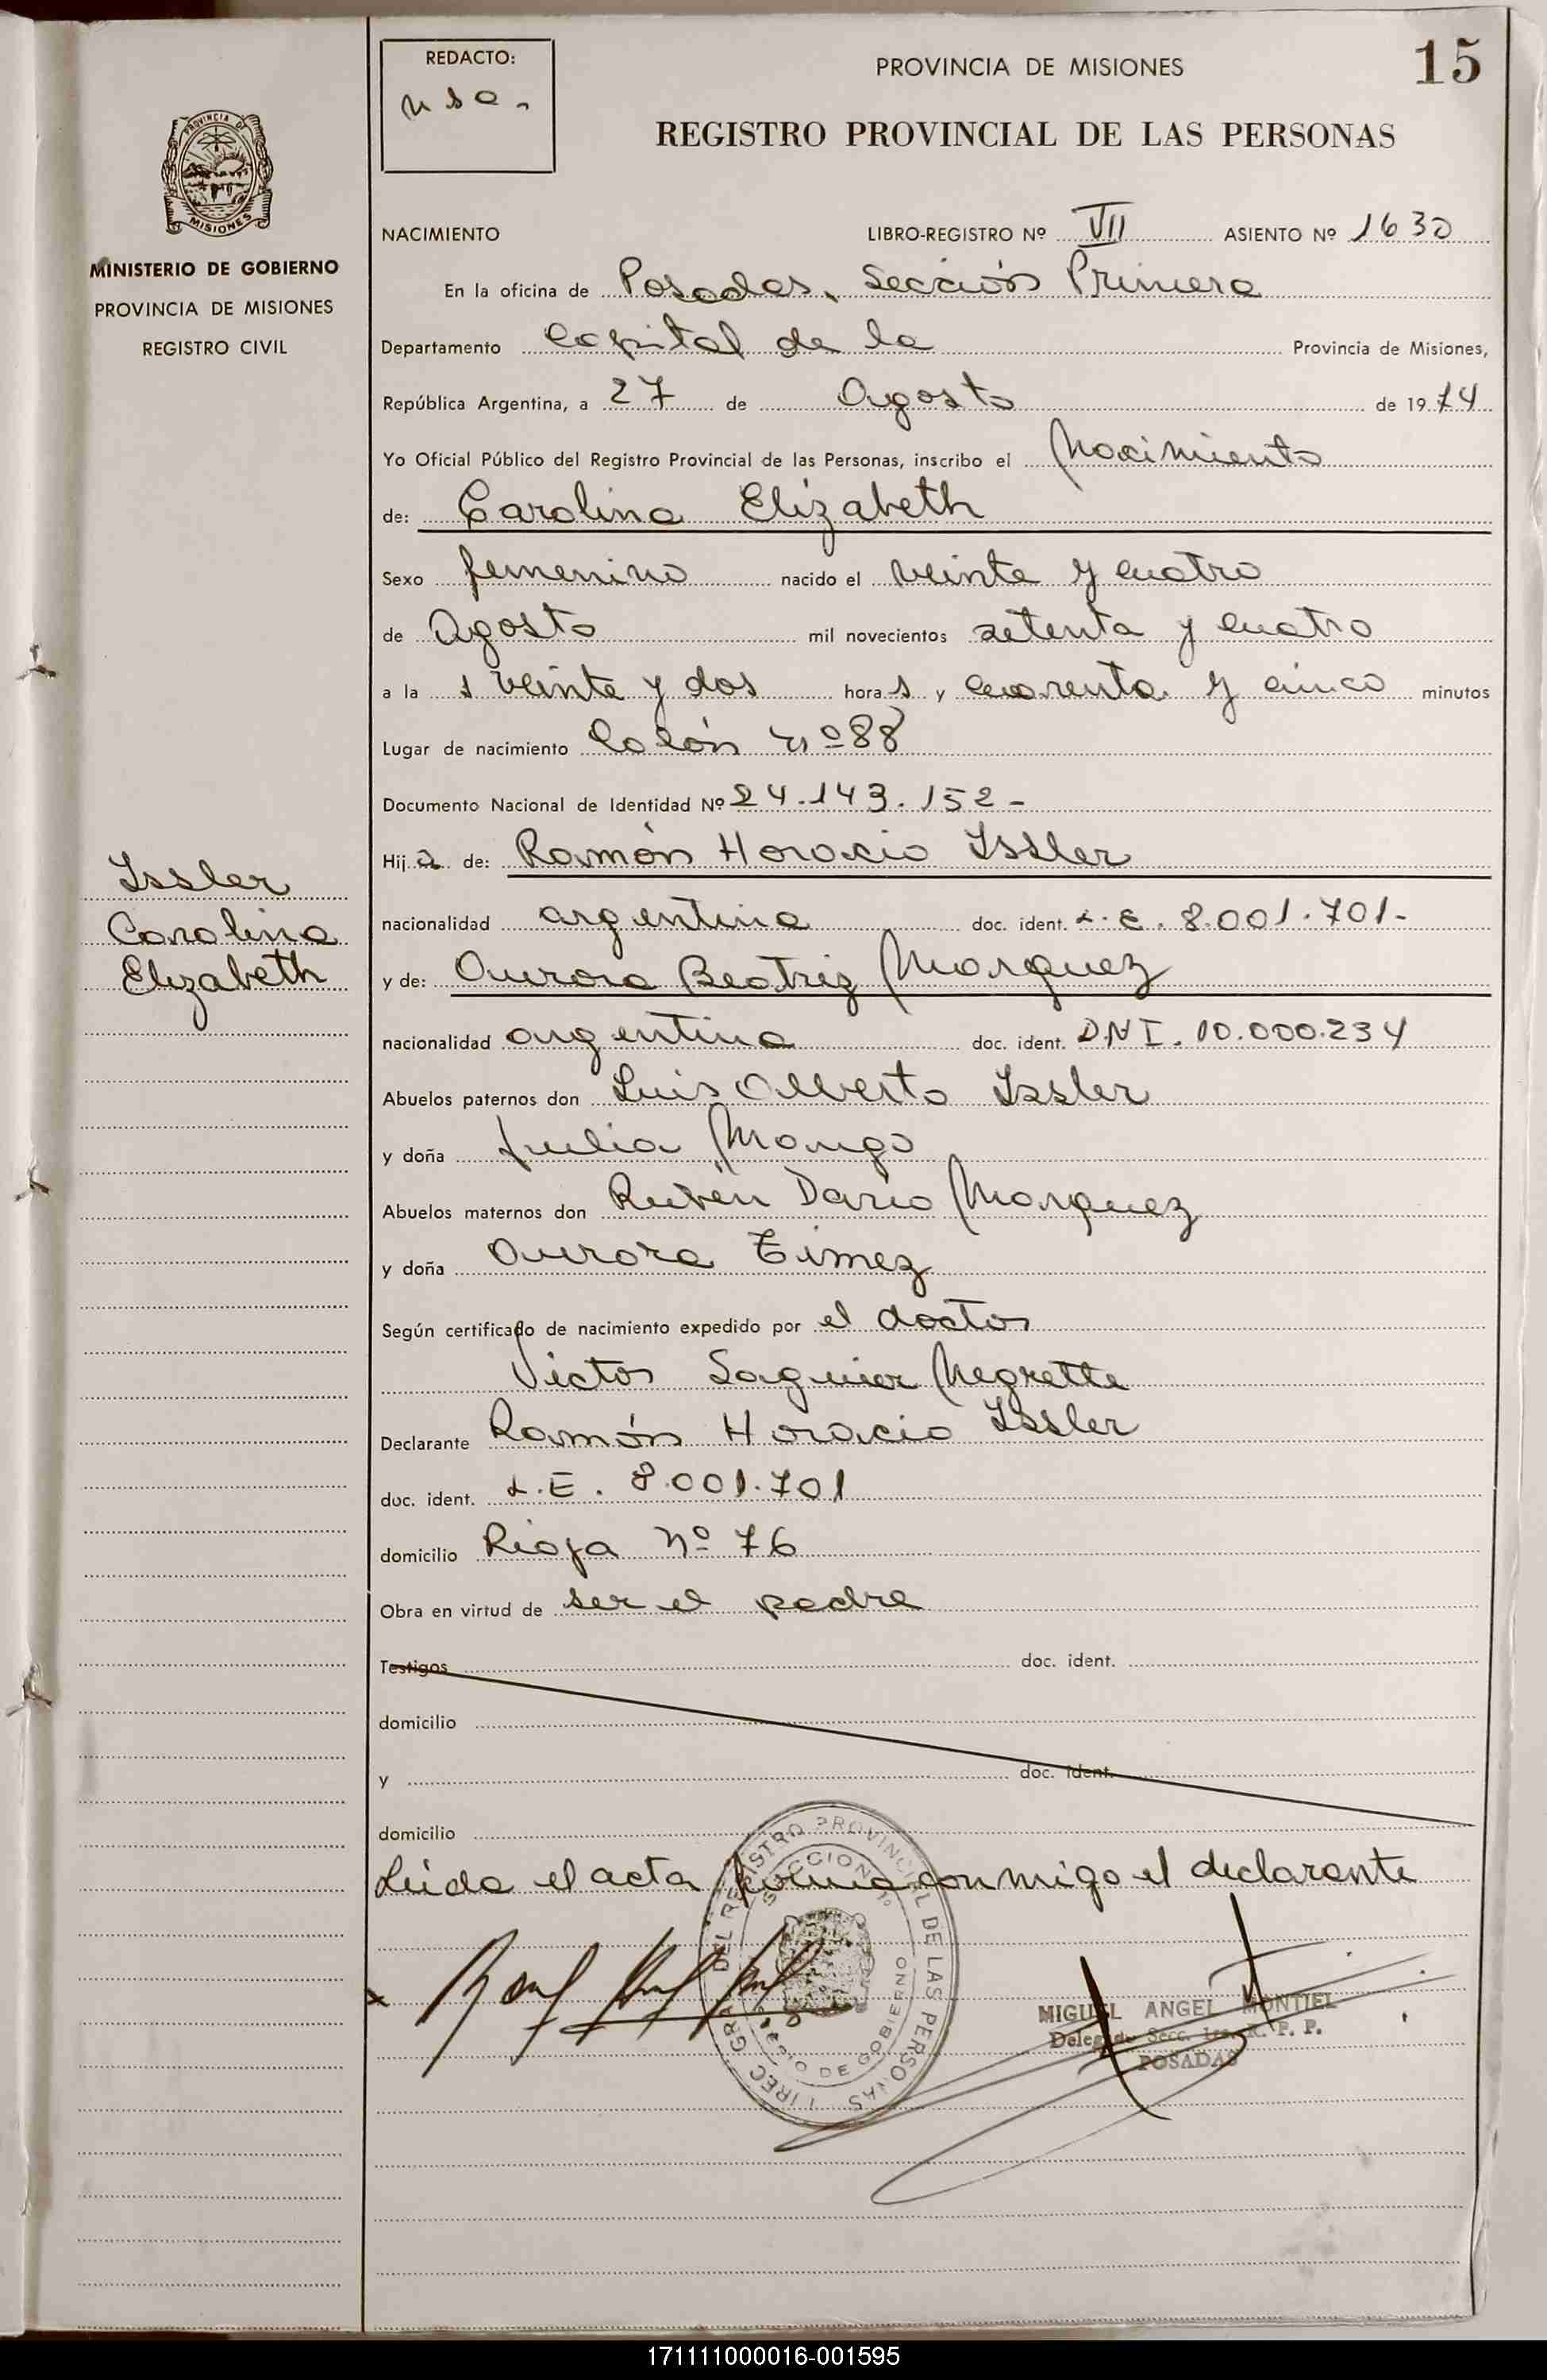 REDACTO:
PROVINCIA DE MISIONES
15
REGISTRO PROVINCIAL DE LAS PERSONAS
PROVINCIA DE
MISIONES
MINISTERIO DE GOBIERNO
PROVINCIA DE MISIONES
REGISTRO CIVIL
NACIMIENTO LIBRO-REGISTRO Nº VII ASIENTO Nº 1630
En la oficina de Posadas, Sección Primera
Departamento Capital de la Provincia de Misiones,
República Argentina, a 27 de Agosto de 1974
Yo Oficial Público del Registro Provincial de las Personas, inscribo el Nacimiento
de: Carolina Elizabeth
Sexo femenino nacido el veinte y cuatro
de Agosto mil novecientos setenta y cuatro
a la s veinte y dos hora s y cuarenta y cinco minutos
Lugar de nacimiento Colón nº 88
Documento Nacional de Identidad Nº 24.143.152-
Hij a de: Ramón Horacio Issler
Issler
Carolina
Elizabeth
nacionalidad argentina doc. ident. L.E. 8.001.701-
y de: Aurora Beatriz Marquez
nacionalidad argentina doc. ident. D.N.I. 10.000.234
Abuelos paternos don Luis Alberto Issler
y doña Julia
Abuelos maternos don Rubén Darío Marquez
y doña Aurora
Según certificado de nacimiento expedido por el doctor
Victor Saguier Negrette
Declarante Ramón Horacio Issler
doc. ident. L.E. 8.001.701
domicilio Rioja Nº 76
Obra en virtud de ser el padre
Testigos doc. ident.
domicilio
y doc. ident.
domicilio
Leida el acta firma conmigo el declarante
DIREC. GRAL. DEL REGISTRO PROVINCIAL DE LAS PERSONAS
SECCION 1º
MINISTERIO DE GOBIERNO
MIGUEL ANGEL MONTIEL
Delegado Secc. 1ra. R. P. P.
POSADAS
171111000016-001595